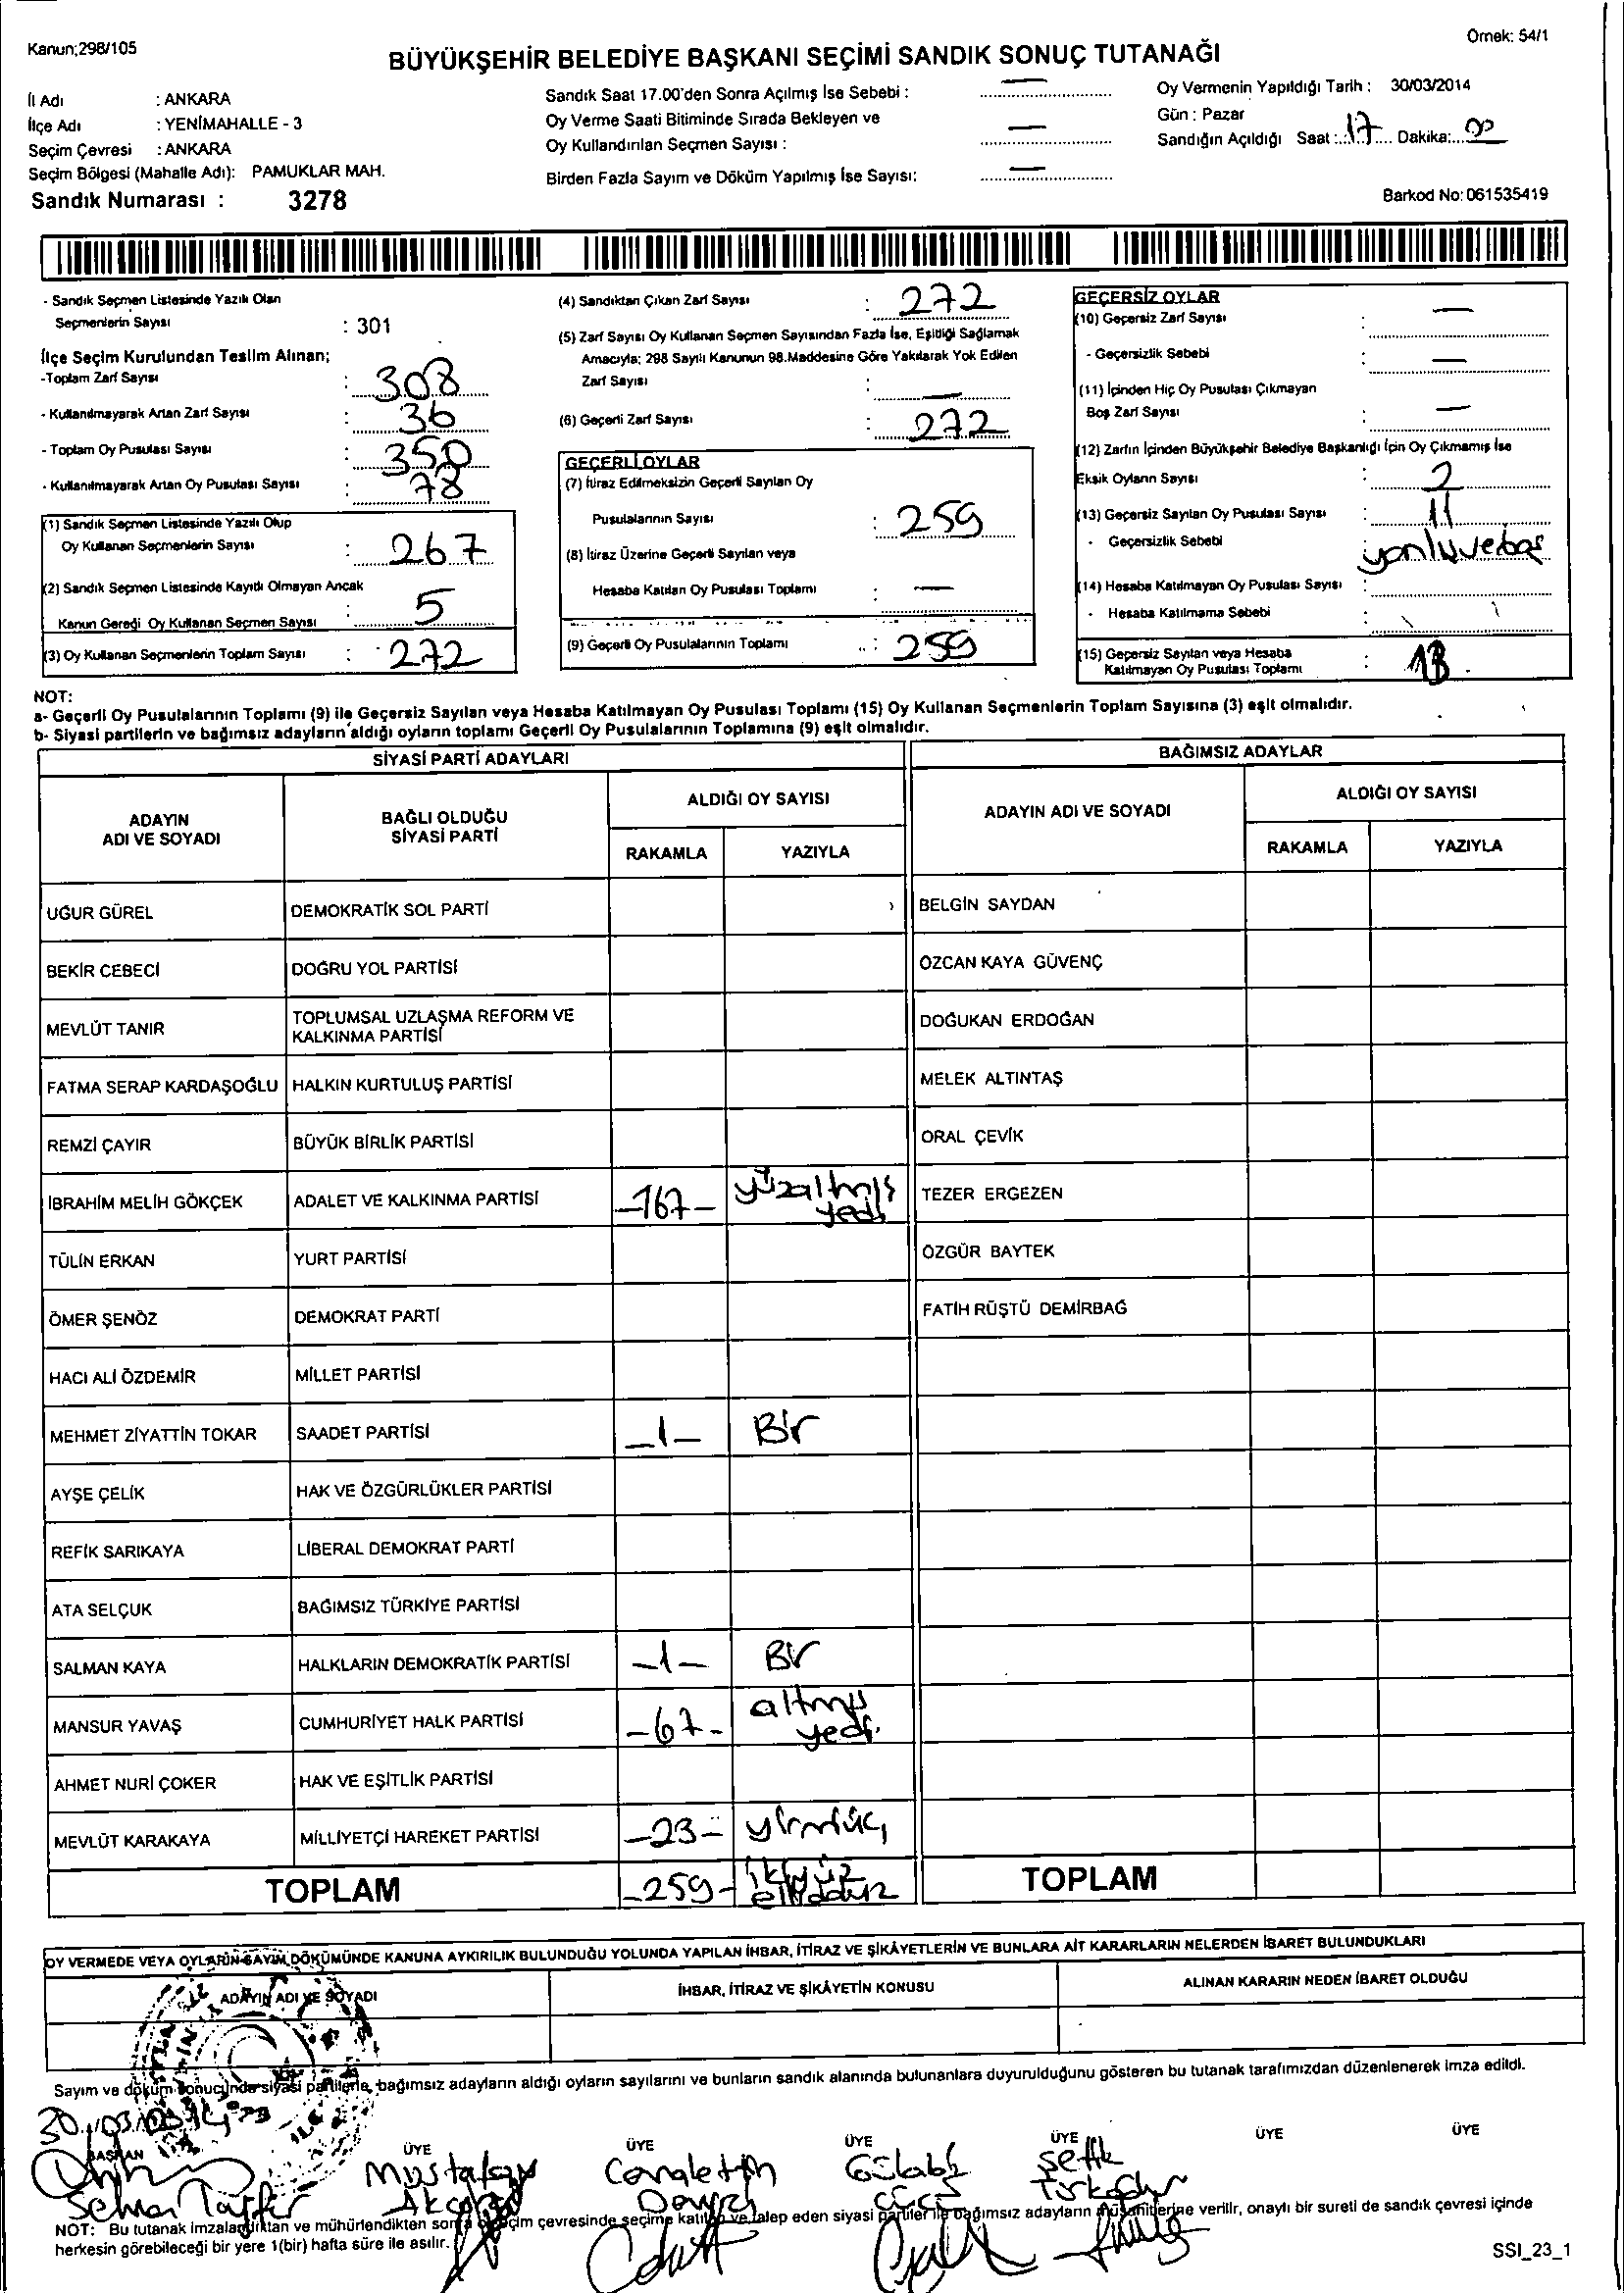 Kanun;298/105
Örnek: 54/1
BÜYÜKŞEHİR BELEDİYE BAŞKANI SEÇİMİ SANDIK SONUÇ TUTANAĞI
İl Adı : ANKARA
İlçe Adı : YENİMAHALLE - 3
Seçim Çevresi : ANKARA
Seçim Bölgesi (Mahalle Adı): PAMUKLAR MAH.
Sandık Numarası : 3278
Sandık Saat 17.00'den Sonra Açılmış İse Sebebi : —
Oy Verme Saati Bitiminde Sırada Bekleyen ve
Oy Kullandırılan Seçmen Sayısı : —
Birden Fazla Sayım ve Döküm Yapılmış İse Sayısı: —
Oy Vermenin Yapıldığı Tarih : 30/03/2014
Gün : Pazar
Sandığın Açıldığı Saat : 17 Dakika: 00
Barkod No: 061535419
- Sandık Seçmen Listesinde Yazılı Olan
Seçmenlerin Sayısı : 301
İlçe Seçim Kurulundan Teslim Alınan;
-Toplam Zarf Sayısı : 308
- Kullanılmayarak Artan Zarf Sayısı : 36
- Toplam Oy Pusulası Sayısı : 350
- Kullanılmayarak Artan Oy Pusulası Sayısı : 78
(1) Sandık Seçmen Listesinde Yazılı Olup
Oy Kullanan Seçmenlerin Sayısı : 267
(2) Sandık Seçmen Listesinde Kayıtlı Olmayan Ancak
Kanun Gereği Oy Kullanan Seçmen Sayısı : 5
(3) Oy Kullanan Seçmenlerin Toplam Sayısı : 272
(4) Sandıktan Çıkan Zarf Sayısı : 272
(5) Zarf Sayısı Oy Kullanan Seçmen Sayısından Fazla İse, Eşitliği Sağlamak
Amacıyla; 298 Sayılı Kanunun 98.Maddesine Göre Yakılarak Yok Edilen
Zarf Sayısı : —
(6) Geçerli Zarf Sayısı : 272
GEÇERLİ OYLAR
(7) İtiraz Edilmeksizin Geçerli Sayılan Oy
Pusulalarının Sayısı : 259
(8) İtiraz Üzerine Geçerli Sayılan veya
Hesaba Katılan Oy Pusulası Toplamı : —
(9) Geçerli Oy Pusulalarının Toplamı : 259
GEÇERSİZ OYLAR
(10) Geçersiz Zarf Sayısı : —
- Geçersizlik Sebebi : —
(11) İçinden Hiç Oy Pusulası Çıkmayan
Boş Zarf Sayısı : —
(12) Zarfın İçinden Büyükşehir Belediye Başkanlığı İçin Oy Çıkmamış İse
Eksik Oyların Sayısı : 2
(13) Geçersiz Sayılan Oy Pusulası Sayısı : 11
- Geçersizlik Sebebi : yanlış ve boş
(14) Hesaba Katılmayan Oy Pusulası Sayısı :
- Hesaba Katılmama Sebebi :
(15) Geçersiz Sayılan veya Hesaba
Katılmayan Oy Pusulası Toplamı : 13
NOT:
a- Geçerli Oy Pusulalarının Toplamı (9) ile Geçersiz Sayılan veya Hesaba Katılmayan Oy Pusulası Toplamı (15) Oy Kullanan Seçmenlerin Toplam Sayısına (3) eşit olmalıdır.
b- Siyasi partilerin ve bağımsız adayların aldığı oyların toplamı Geçerli Oy Pusulalarının Toplamına (9) eşit olmalıdır.
SİYASİ PARTİ ADAYLARI BAĞIMSIZ ADAYLAR
ADAYIN ADI VE SOYADI BAĞLI OLDUĞU SİYASİ PARTİ ALDIĞI OY SAYISI ADAYIN ADI VE SOYADI ALDIĞI OY SAYISI
RAKAMLA YAZIYLA RAKAMLA YAZIYLA
UĞUR GÜREL DEMOKRATİK SOL PARTİ BELGİN SAYDAN
BEKİR CEBECİ DOĞRU YOL PARTİSİ ÖZCAN KAYA GÜVENÇ
MEVLÜT TANIR TOPLUMSAL UZLAŞMA REFORM VE KALKINMA PARTİSİ DOĞUKAN ERDOĞAN
FATMA SERAP KARDAŞOĞLU HALKIN KURTULUŞ PARTİSİ MELEK ALTINTAŞ
REMZİ ÇAYIR BÜYÜK BİRLİK PARTİSİ ORAL ÇEVİK
İBRAHİM MELİH GÖKÇEK ADALET VE KALKINMA PARTİSİ -167- yüzaltmış yedi TEZER ERGEZEN
TÜLİN ERKAN YURT PARTİSİ ÖZGÜR BAYTEK
ÖMER ŞENÖZ DEMOKRAT PARTİ FATİH RÜŞTÜ DEMİRBAĞ
HACI ALİ ÖZDEMİR MİLLET PARTİSİ
MEHMET ZİYATTİN TOKAR SAADET PARTİSİ -1- Bir
AYŞE ÇELİK HAK VE ÖZGÜRLÜKLER PARTİSİ
REFİK SARIKAYA LİBERAL DEMOKRAT PARTİ
ATA SELÇUK BAĞIMSIZ TÜRKİYE PARTİSİ
SALMAN KAYA HALKLARIN DEMOKRATİK PARTİSİ -1- Bir
MANSUR YAVAŞ CUMHURİYET HALK PARTİSİ -67- altmış yedi.
AHMET NURİ ÇOKER HAK VE EŞİTLİK PARTİSİ
MEVLÜT KARAKAYA MİLLİYETÇİ HAREKET PARTİSİ -23- yirmiüç
TOPLAM -259- ikiyüz ellidokuz TOPLAM
OY VERMEDE VEYA OYLARIN SAYIM DÖKÜMÜNDE KANUNA AYKIRILIK BULUNDUĞU YOLUNDA YAPILAN İHBAR, İTİRAZ VE ŞİKÂYETLERİN VE BUNLARA AİT KARARLARIN NELERDEN İBARET BULUNDUKLARI
ADAYIN ADI VE SOYADI İHBAR, İTİRAZ VE ŞİKÂYETİN KONUSU ALINAN KARARIN NEDEN İBARET OLDUĞU
Sayım ve döküm sonucunda siyasi partilerle, bağımsız adayların aldığı oyların sayılarını ve bunların sandık alanında bulunanlara duyurulduğunu gösteren bu tutanak tarafımızdan düzenlenerek imza edildi.
BAŞKAN ÜYE ÜYE ÜYE ÜYE ÜYE ÜYE
Mustafa Şefik
NOT: Bu tutanak imzalandıktan ve mühürlendikten sonra seçim çevresinde seçime katılan ve talep eden siyasi partiler ile bağımsız adayların müşahitlerine verilir, onaylı bir sureti de sandık çevresi içinde
herkesin görebileceği bir yere 1(bir) hafta süre ile asılır.
SSI_23_1